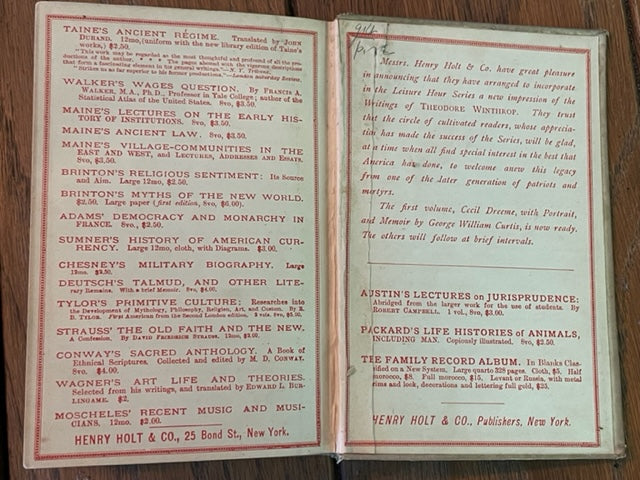 TAINE'S ANCIENT RÉGIME. Translated by JOHN
DURAND. 12mo, (uniform with the new library edition of Taine's
works,) $2.50.
"This work may be regarded as the most thoughtful and profound of all the pro-
ductions of the author. * * * The pages abound with the vigorous descriptions
that form a fascinating element in his general writings."—N. Y. Tribune.
"Written as so far superior to his former productions."—London Saturday Review.
WALKER'S WAGES QUESTION. By FRANCIS A.
WALKER, M.A., Ph.D., Professor in Yale College; author of the
Statistical Atlas of the United States. 8vo, $3.50.
MAINE'S LECTURES ON THE EARLY HIS-
TORY OF INSTITUTIONS. 8vo, $3.50.
MAINE'S ANCIENT LAW. 8vo, $3.50.
MAINE'S VILLAGE-COMMUNITIES IN THE
EAST AND WEST, and LECTURES, ADDRESSES AND ESSAYS.
8vo, $3.50.
BRINTON'S RELIGIOUS SENTIMENT: Its Source
and Aim. Large 12mo, $2.50.
BRINTON'S MYTHS OF THE NEW WORLD.
$2.50. Large paper (first edition, 8vo, $6.00).
ADAMS' DEMOCRACY AND MONARCHY IN
FRANCE. 8vo., $2.50.
SUMNER'S HISTORY OF AMERICAN CUR-
RENCY. Large 12mo, cloth, with Diagrams. $3.00.
CHESNEY'S MILITARY BIOGRAPHY. Large
12mo. $2.50.
DEUTSCH'S TALMUD, AND OTHER LITE-
rary Remains. With a brief Memoir. 8vo, $4.00.
TYLOR'S PRIMITIVE CULTURE: Researches into
the Development of Mythology, Philosophy, Religion, Art, and Custom. By E.
B. TYLOR. First American from the Second London edition. 2 vols. 8vo,
STRAUSS' THE OLD FAITH AND THE NEW.
A Confession. By DAVID FRIEDRICH STRAUSS. 12mo,
CONWAY'S SACRED ANTHOLOGY. A Book of
Ethnical Scriptures. Collected and edited by M. D. CONWAY.
8vo. $4.00.
WAGNER'S ART LIFE AND THEORIES.
Selected from his writings, and translated by EDWARD L. BUR-
LINGAME. $2.
MOSCHELES' RECENT MUSIC AND MUSI-
CIANS, 12mo. $2.00.
HENRY HOLT & CO., 25 Bond St., New York.
Messrs. Henry Holt & Co. have great pleasure
in announcing that they have arranged to incorporate
in the Leisure Hour Series a new impression of the
Writings of THEODORE WINTHROP. They trust
that the circle of cultivated readers, whose apprecia-
tion has made the success of the Series, will be glad,
at a time when all find special interest in the best that
America has done, to welcome anew this legacy
from one of the later generation of patriots and
martyrs.
The first volume, Cecil Dreeme, with Portrait,
and Memoir by George William Curtis, is now ready.
The others will follow at brief intervals.
AUSTIN'S LECTURES ON JURISPRUDENCE:
Abridged from the larger work for the use of students. By
ROBERT CAMPBELL. 1 vol., 8vo, $3.00.
PACKARD'S LIFE HISTORIES OF ANIMALS,
INCLUDING MAN. Copiously illustrated. 8vo, $2.50.
THE FAMILY RECORD ALBUM. In Blanks Clas-
sified on a New System. Large quarto 328 pages. Cloth, $5. Half
morocco, $8. Full morocco, $15. Levant or Russia, with metal
rims and lock, decorations and lettering full gold, $25.
HENRY HOLT & CO., Publishers, New York.